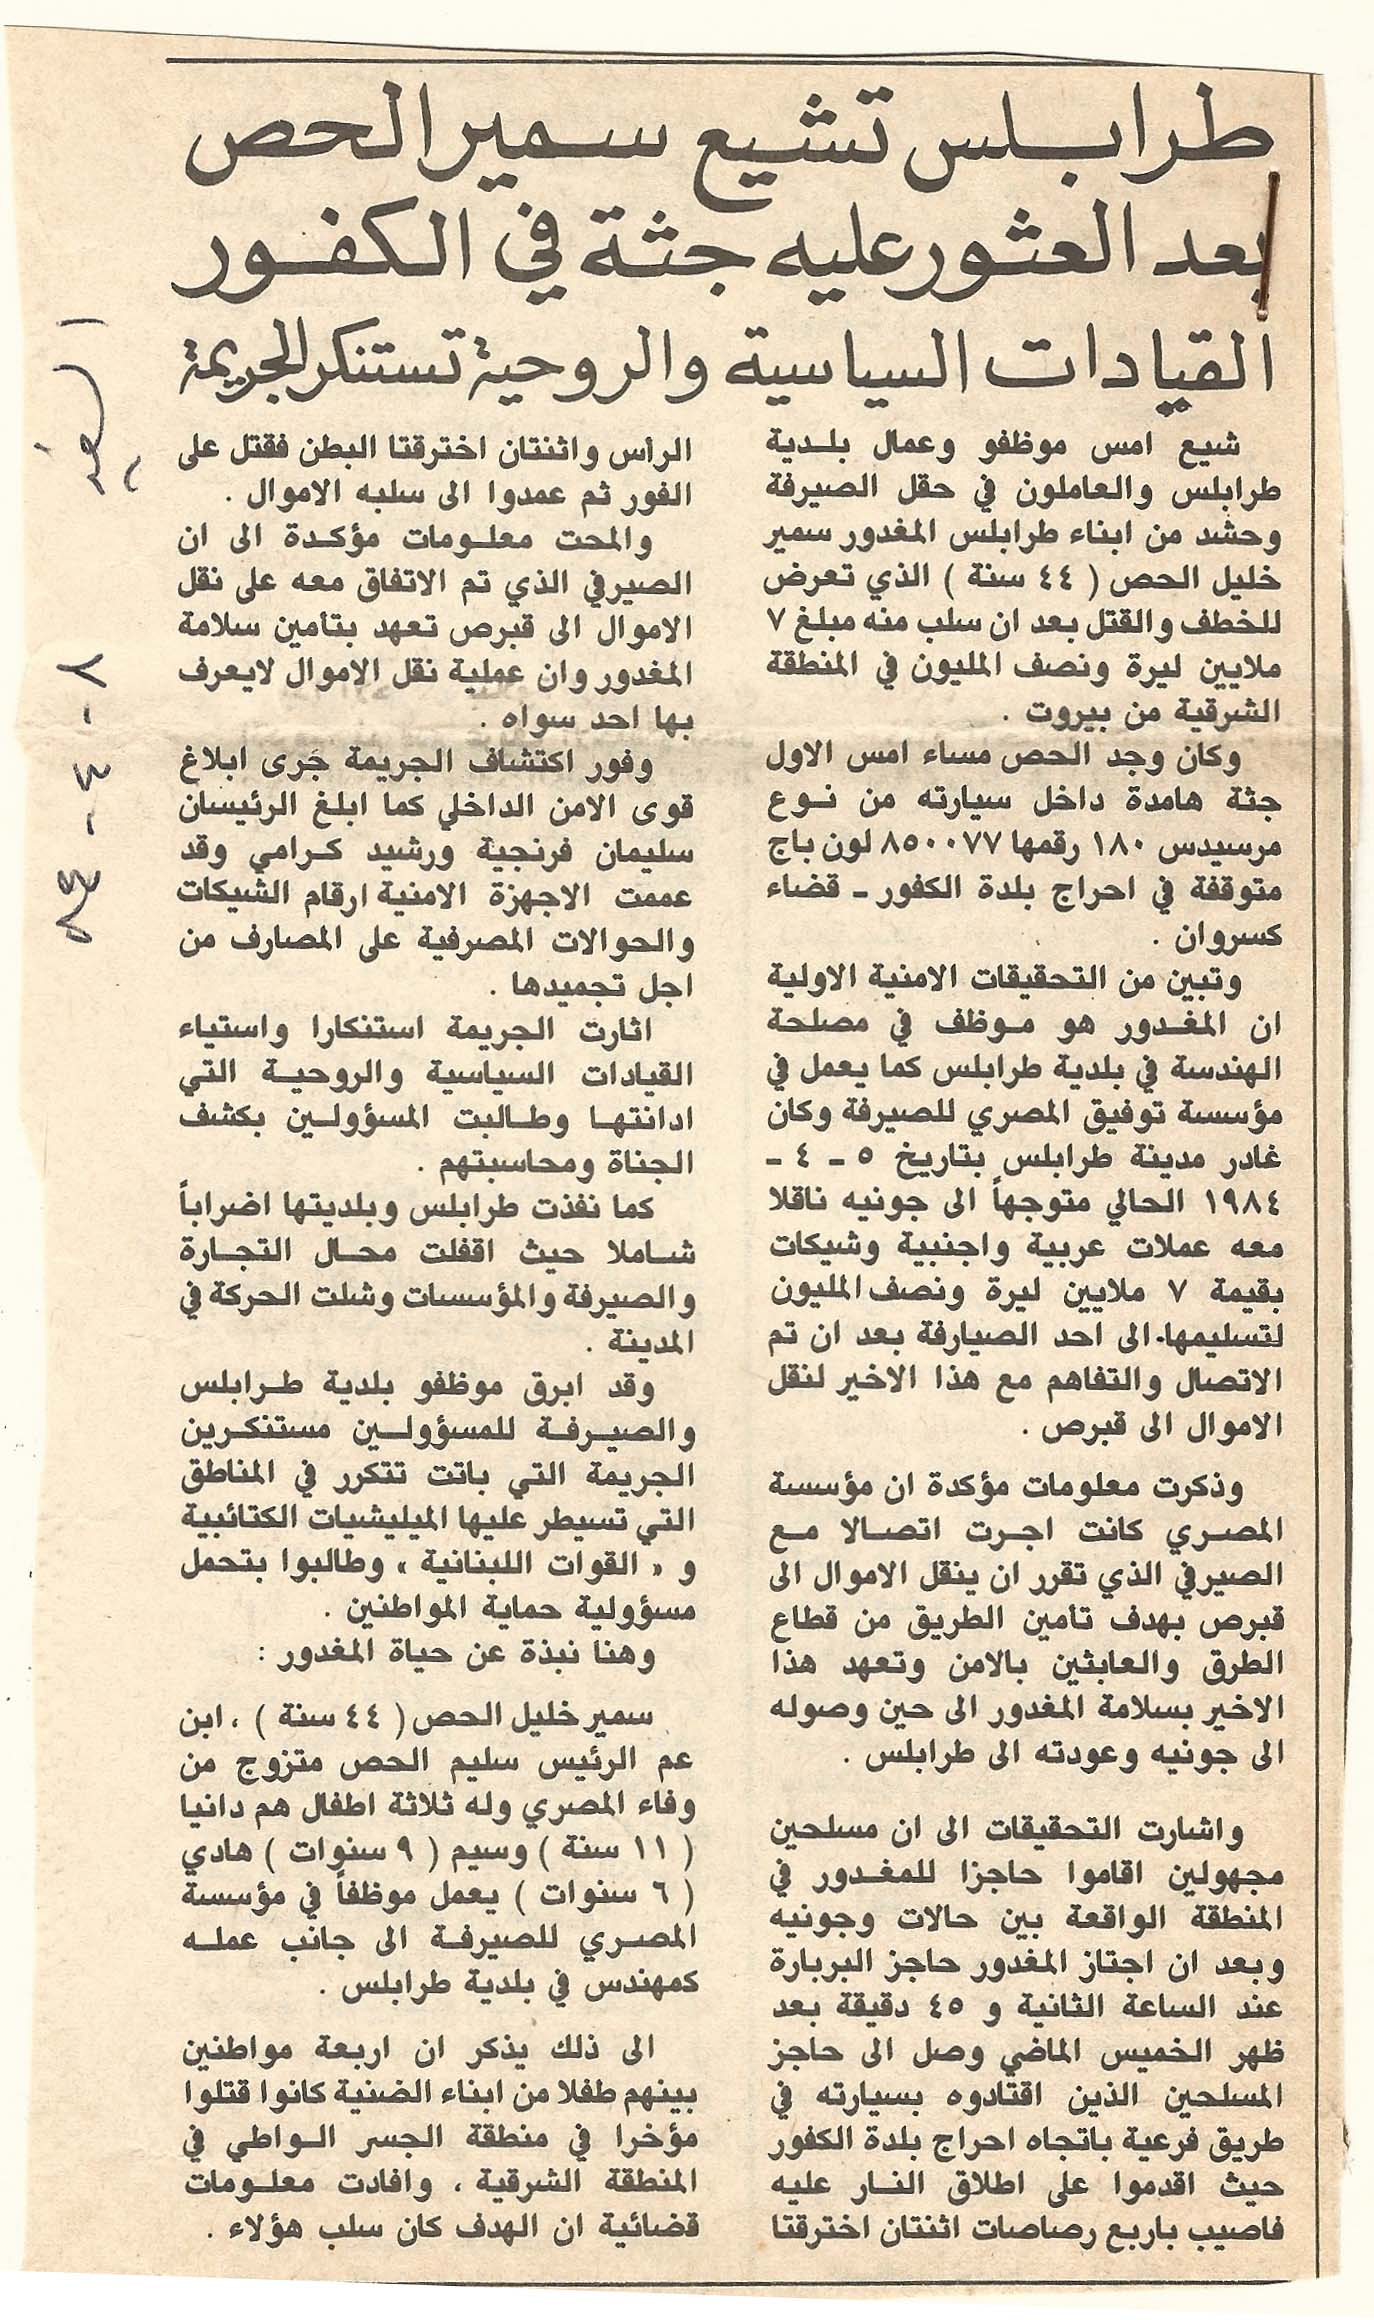 طرابلس تشيع سمير الحص
بعد العثور عليه جثة في الكفور
القيادات السياسية والروحية تستنكر الجريمة
شيع امس موظفو وعمال بلدية
طرابلس والعاملون في حقل الصيرفة
وحشد من ابناء طرابلس المغدور سمير
خليل الحص ( ٤٤ سنة ) الذي تعرض
للخطف والقتل بعد ان سلب منه مبلغ ٧
ملايين ليرة ونصف المليون في المنطقة
الشرقية من بيروت .
وكان وجد الحص مساء امس الاول
جثة هامدة داخل سيارته من نوع
مرسيدس ١٨٠ رقمها ٨٥٠٠٧٧ لون باج
متوقفة في احراج بلدة الكفور ـ قضاء
كسروان .
وتبين من التحقيقات الامنية الاولية
ان المغدور هو موظف في مصلحة
الهندسة في بلدية طرابلس كما يعمل في
مؤسسة توفيق المصري للصيرفة وكان
غادر مدينة طرابلس بتاريخ ٥ ـ ٤ ـ
١٩٨٤ الحالي متوجهاً الى جونيه ناقلا
معه عملات عربية واجنبية وشيكات
بقيمة ٧ ملايين ليرة ونصف المليون
لتسليمها الى احد الصيارفة بعد ان تم
الاتصال والتفاهم مع هذا الاخير لنقل
الاموال الى قبرص .
وذكرت معلومات مؤكدة ان مؤسسة
المصري كانت اجرت اتصالا مع
الصيرفي الذي تقرر ان ينقل الاموال الى
قبرص بهدف تأمين الطريق من قطاع
الطرق والعابثين بالامن وتعهد هذا
الاخير بسلامة المغدور الى حين وصوله
الى جونيه وعودته الى طرابلس .
واشارت التحقيقات الى ان مسلحين
مجهولين اقاموا حاجزا للمغدور في
المنطقة الواقعة بين حالات وجونيه
وبعد ان اجتاز المغدور حاجز البربارة
عند الساعة الثانية و ٤٥ دقيقة بعد
ظهر الخميس الماضي وصل الى حاجز
المسلحين الذين اقتادوه بسيارته في
طريق فرعية باتجاه احراج بلدة الكفور
حيث اقدموا على اطلاق النار عليه
فاصيب باربع رصاصات اثنتان اخترقتا
الرأس واثنتان اخترقتا البطن فقتل على
الفور ثم عمدوا الى سلبه الاموال .
والمحت معلومات مؤكدة الى ان
الصيرفي الذي تم الاتفاق معه على نقل
الاموال الى قبرص تعهد بتأمين سلامة
المغدور وان عملية نقل الاموال لايعرف
بها احد سواه .
وفور اكتشاف الجريمة جَرى ابلاغ
قوى الامن الداخلي كما ابلغ الرئيسان
سليمان فرنجية ورشيد كرامي وقد
عممت الاجهزة الامنية ارقام الشيكات
والحوالات المصرفية على المصارف من
اجل تجميدها .
اثارت الجريمة استنكارا واستياء
القيادات السياسية والروحية التي
ادانتها وطالبت المسؤولين بكشف
الجناة ومحاسبتهم .
كما نفذت طرابلس وبلديتها اضراباً
شاملا حيث اقفلت محال التجارة
والصيرفة والمؤسسات وشلت الحركة في
المدينة .
وقد ابرق موظفو بلدية طرابلس
والصيرفة للمسؤولين مستنكرين
الجريمة التي باتت تتكرر في المناطق
التي تسيطر عليها الميليشيات الكتائبية
و « القوات اللبنانية » وطالبوا بتحمل
مسؤولية حماية المواطنين .
وهنا نبذة عن حياة المغدور :
سمير خليل الحص ( ٤٤ سنة ) ، ابن
عم الرئيس سليم الحص متزوج من
وفاء المصري وله ثلاثة اطفال هم دانيا
( ١١ سنة ) وسيم ( ٩ سنوات ) هادي
( ٦ سنوات ) يعمل موظفاً في مؤسسة
المصري للصيرفة الى جانب عمله
كمهندس في بلدية طرابلس .
الى ذلك يذكر ان اربعة مواطنين
بينهم طفلا من ابناء الضنية كانوا قتلوا
مؤخرا في منطقة الجسر الواطي في
المنطقة الشرقية ، وافادت معلومات
قضائية ان الهدف كان سلب هؤلاء .
السفير